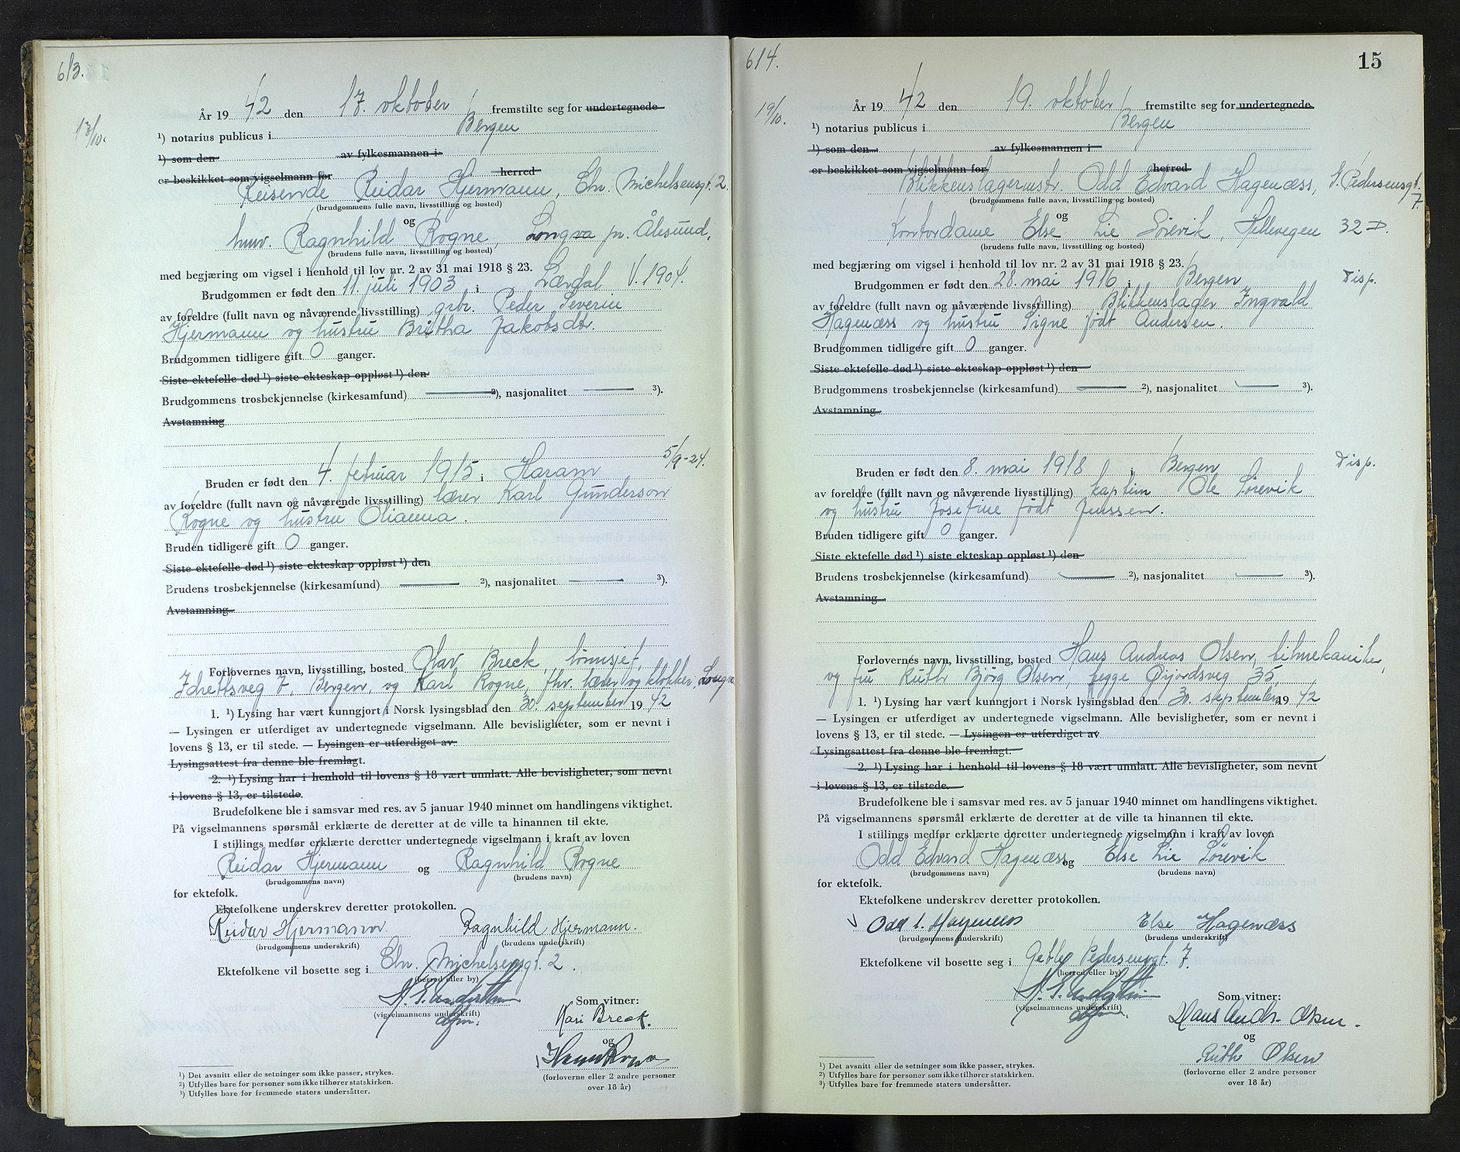 613.
17/10.
År 19 42 den 17. oktober fremstilte seg for undertegnede
¹) notarius publicus i Bergen
¹) som den av fylkesmannen i
er beskikket som vigselmann for herred
Reisende Reidar Hjermann, Chr. Michelsensgt. 2.
(brudgommens fulle navn, livsstilling og bosted)
og
huv. Ragnhild Rogne, Longva pr. Ålesund.
(brudens fulle navn, livsstilling og bosted)
med begjæring om vigsel i henhold til lov nr. 2 av 31 mai 1918 § 23.
Brudgommen er født den 11. juli 1903 i Lærdal V. 1904.
av foreldre (fullt navn og nåværende livsstilling) grbr. Peder Severin
Hjermann og hustru Britha Jakobsdtr.
Brudgommen tidligere gift 0 ganger.
Siste ektefelle død ¹) siste ekteskap oppløst ¹) den
Brudgommens trosbekjennelse (kirkesamfund) ²), nasjonalitet ³).
Avstamning
5/9-24.
Bruden er født den 4. februar 1915 i Haram
av foreldre (fullt navn og nåværende livsstilling) lærer Karl Gunderson
Rogne og hustru Olianna.
Bruden tidligere gift 0 ganger.
Siste ektefelle død ¹) siste ekteskap oppløst ¹) den
Brudens trosbekjennelse (kirkesamfund) ²), nasjonalitet ³).
Avstamning
Forlovernes navn, livsstilling, bosted Olav Breck
Idrettsveg 7, Bergen, og Karl Rogne, fhv. lærer og klokker, Longva
1. ¹) Lysing har vært kunngjort i Norsk lysingsblad den 30. september 19 42
— Lysingen er utferdiget av undertegnede vigselmann. Alle bevisligheter, som er nevnt i
lovens § 13, er til stede. — Lysingen er utferdiget av
Lysingsattest fra denne ble fremlagt.
2. ¹) Lysing har i henhold til lovens § 18 vært unnlatt. Alle bevisligheter, som nevnt
i lovens § 13, er tilstede.
Brudefolkene ble i samsvar med res. av 5 januar 1940 minnet om handlingens viktighet.
På vigselmannens spørsmål erklærte de deretter at de ville ta hinannen til ekte.
I stillings medfør erklærte deretter undertegnede vigselmann i kraft av loven
Reidar Hjermann og Ragnhild Rogne
(brudgommens navn) (brudens navn)
for ektefolk.
Ektefolkene underskrev deretter protokollen.
Reidar Hjermann Ragnhild Hjermann.
(brudgommens underskrift) (brudens underskrift)
Ektefolkene vil bosette seg i Chr. Michelsensgt. 2.
(herred eller by)
(vigselmannens underskrift)
Som vitner:
Kari Breck.
og
(forloverne eller 2 andre personer
over 18 år)
¹) Det avsnitt eller de setninger som ikke passer, strykes.
²) Utfylles bare for personer som ikke tilhører statskirken.
³) Utfylles bare for fremmede staters undersåtter.
614.
15
19/10.
År 19 42 den 19. oktober fremstilte seg for undertegnede
¹) notarius publicus i Bergen
¹) som den av fylkesmannen i
er beskikket som vigselmann for herred
Blikkenslagermstr. Odd Edvard Hagenæss, G. Pedersensgt. 7.
(brudgommens fulle navn, livsstilling og bosted)
og
Kontordame Else Lie Sørevik, Hellevegen 32 D.
(brudens fulle navn, livsstilling og bosted)
med begjæring om vigsel i henhold til lov nr. 2 av 31 mai 1918 § 23.
Brudgommen er født den 28. mai 1916 i Bergen Disp.
av foreldre (fullt navn og nåværende livsstilling) Blikkenslager Ingvald
Hagenæss og hustru Signe født Andersen.
Brudgommen tidligere gift 0 ganger.
Siste ektefelle død ¹) siste ekteskap oppløst ¹) den
Brudgommens trosbekjennelse (kirkesamfund) ²), nasjonalitet ³).
Avstamning
Bruden er født den 8. mai 1918 i Bergen Disp.
av foreldre (fullt navn og nåværende livsstilling) kaptein Ole Sørevik
og hustru Josefine født Jenssen.
Bruden tidligere gift 0 ganger.
Siste ektefelle død ¹) siste ekteskap oppløst ¹) den
Brudens trosbekjennelse (kirkesamfund) ²), nasjonalitet ³).
Avstamning
Forlovernes navn, livsstilling, bosted Hans Andreas Olsen, bilmekaniker,
og fru Ruth Bjørg Olsen, begge Øyjordsveg 35,
1. ¹) Lysing har vært kunngjort i Norsk lysingsblad den 30. september 19 42
— Lysingen er utferdiget av undertegnede vigselmann. Alle bevisligheter, som er nevnt i
lovens § 13, er til stede. — Lysingen er utferdiget av
Lysingsattest fra denne ble fremlagt.
2. ¹) Lysing har i henhold til lovens § 18 vært unnlatt. Alle bevisligheter, som nevnt
i lovens § 13, er tilstede.
Brudefolkene ble i samsvar med res. av 5 januar 1940 minnet om handlingens viktighet.
På vigselmannens spørsmål erklærte de deretter at de ville ta hinannen til ekte.
I stillings medfør erklærte deretter undertegnede vigselmann i kraft av loven
Odd Edvard Hagenæss og Else Lie Sørevik
(brudgommens navn) (brudens navn)
for ektefolk.
Ektefolkene underskrev deretter protokollen.
Odd E. Hagenæss Else Hagenæss
(brudgommens underskrift) (brudens underskrift)
Ektefolkene vil bosette seg i Gerhd. Pedersensgt. 7.
(herred eller by)
(vigselmannens underskrift)
Som vitner:
Hans Andr. Olsen.
og
Ruth Olsen
(forloverne eller 2 andre personer
over 18 år)
¹) Det avsnitt eller de setninger som ikke passer, strykes.
²) Utfylles bare for personer som ikke tilhører statskirken.
³) Utfylles bare for fremmede staters undersåtter.